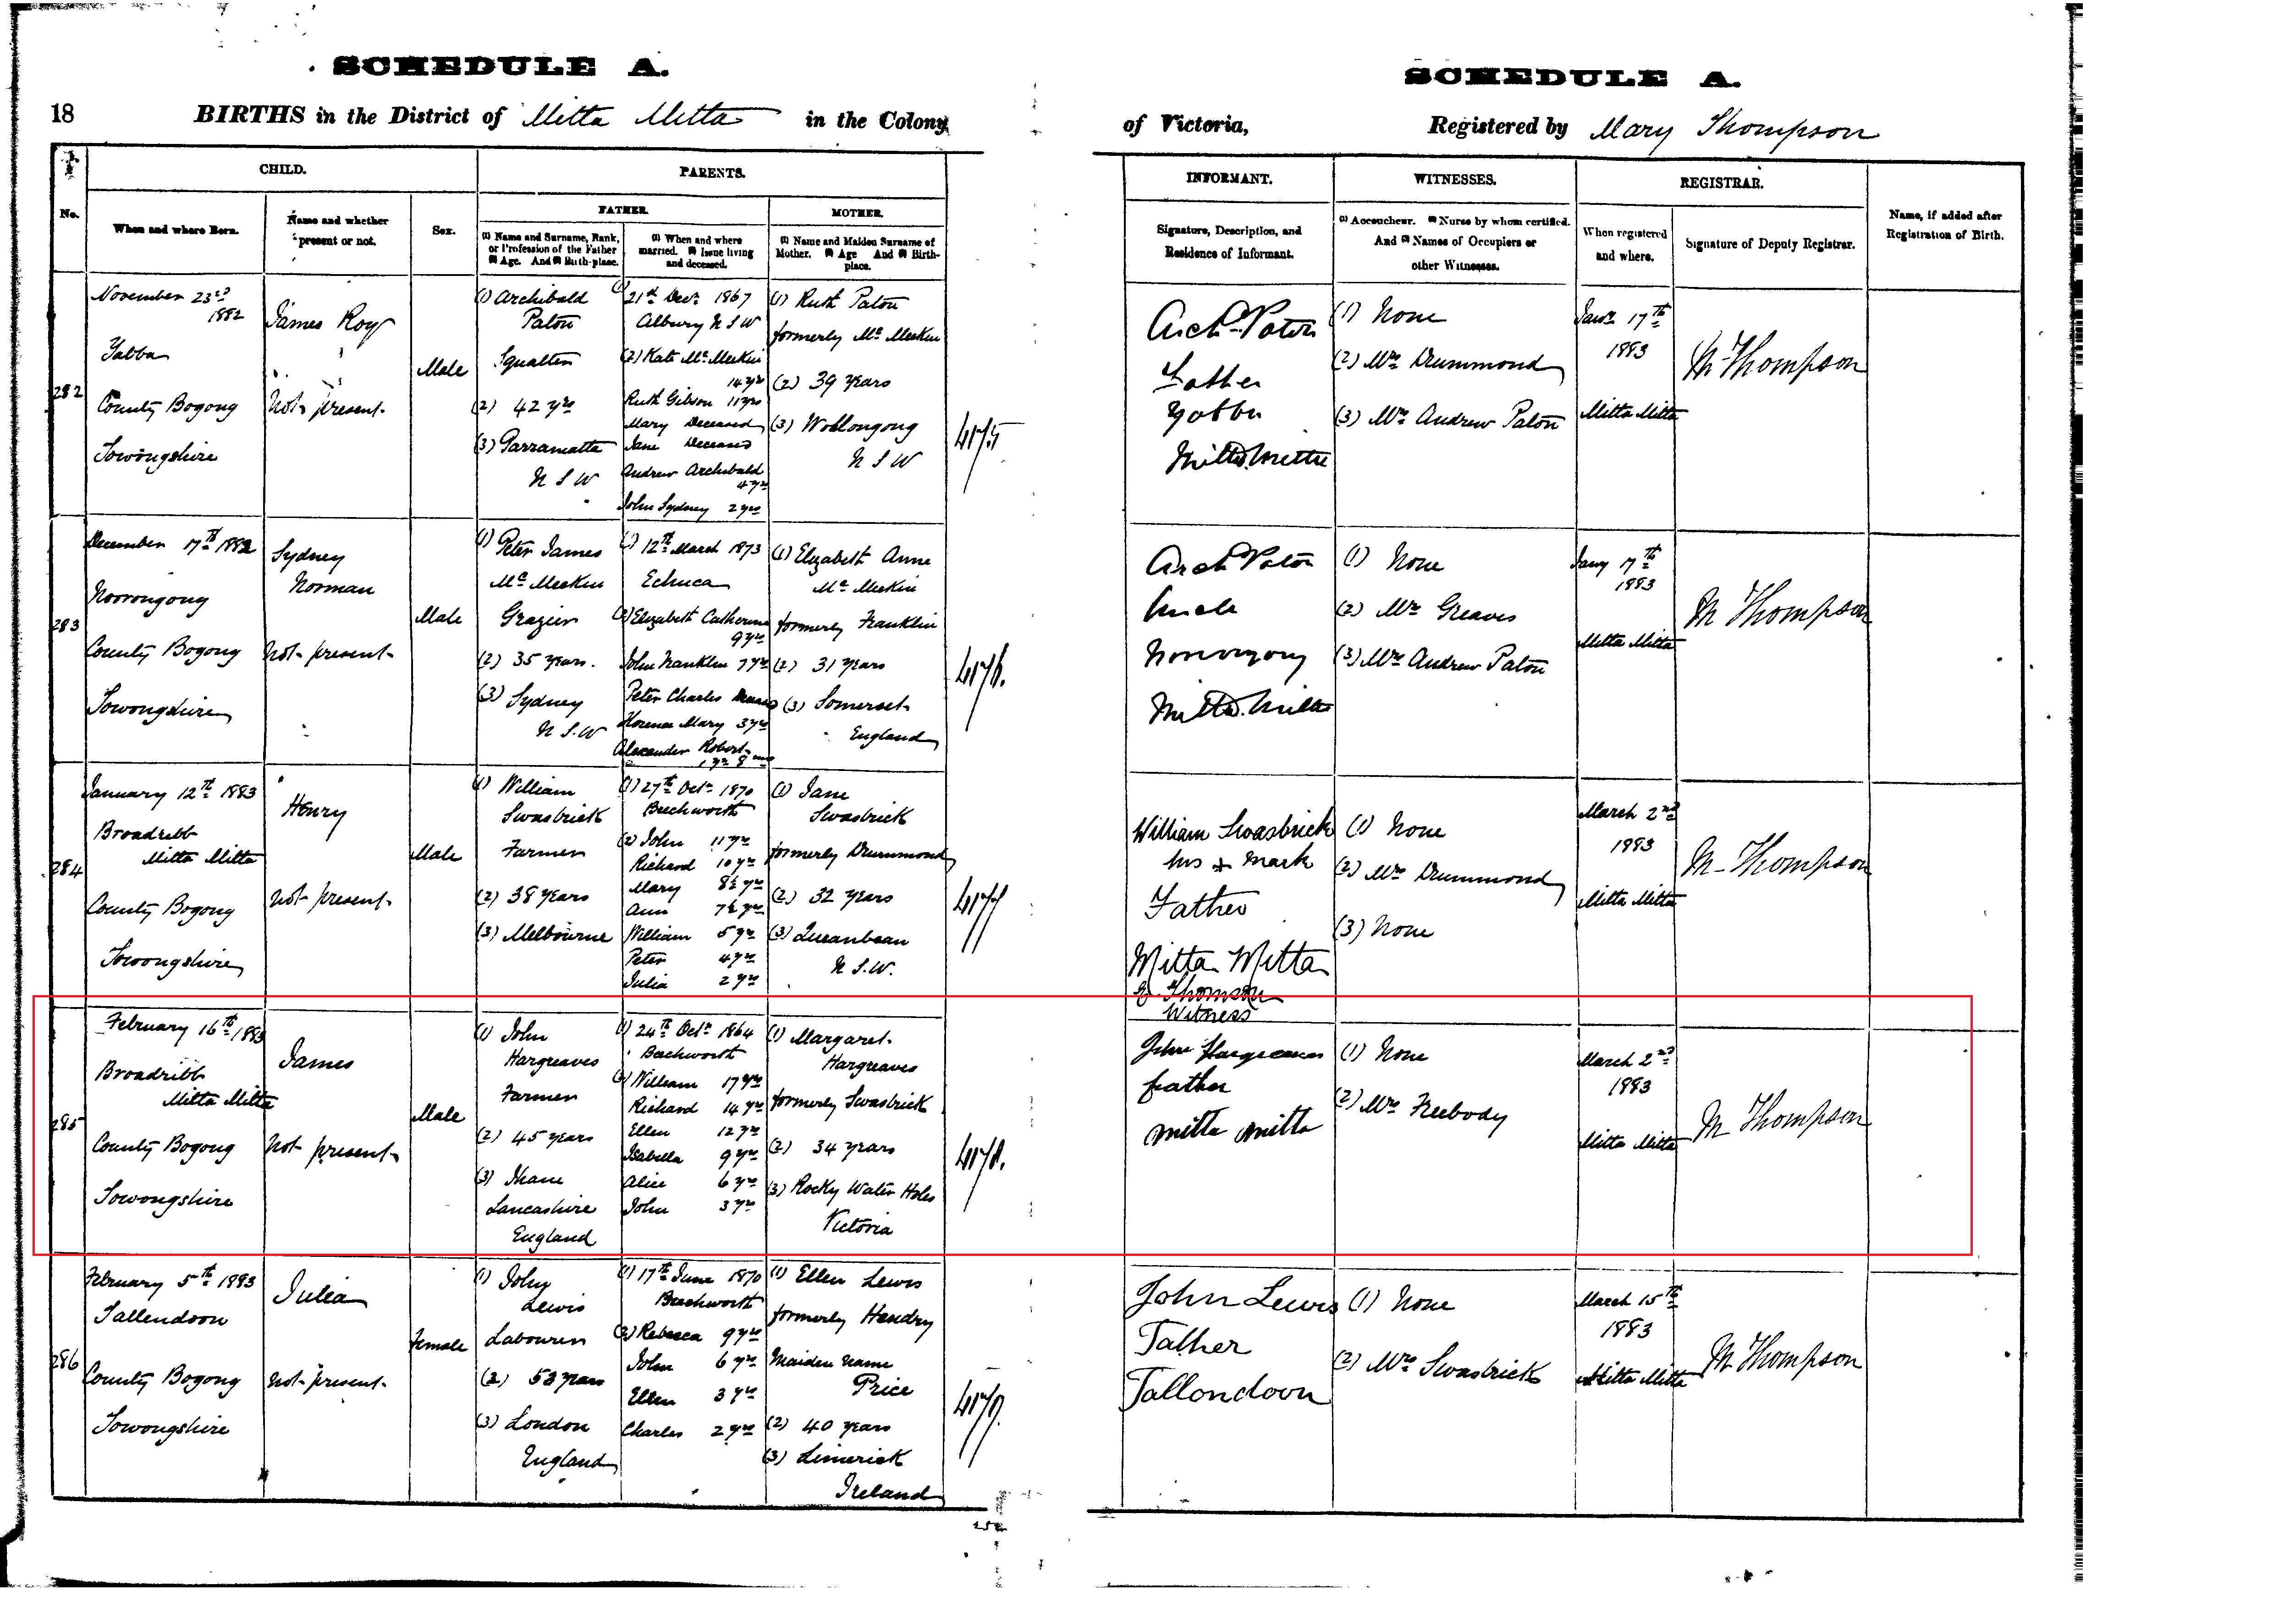 SCHEDULE A.
18 BIRTHS in the District of Mitta Mitta in the Colony
CHILD.
PARENTS.
No.
When and where Born.
Name and whether present or not.
Sex.
FATHER.
MOTHER.
(1) Name and Surname, Rank, or Profession of the Father (2) Age. And (3) Birth-place.
(1) When and where married. (2) Issue living and deceased.
(1) Name and Maiden Surname of Mother. (2) Age And (3) Birth-place.
282
November 23rd 1882
Yabba
County Bogong
Towongshire
James Roy
Not present
Male
(1) Archibald
Paton
Squatter
(2) 42 yrs
(3) Parramatta
N S W
(1) 21st Decr 1867
Albury N S W
(2) Kate McMeekin
14 yrs
Ruth Gibson 11 yrs
Mary Deceased
Jane Deceased
Andrew Archibald
4 yrs
John Sydney 2 yrs
(1) Ruth Paton
formerly McMeekin
(2) 39 years
(3) Wollongong
N S W
4175
283
December 17th 1882
Noorongong
County Bogong
Towongshire
Sydney
Norman
Not present
Male
(1) Peter James
McMeekin
Grazier
(2) 35 years.
(3) Sydney
N S W
(1) 12th March 1873
Echuca
(2) Elizabeth Catherine
9 yrs
John Franklin 7 yrs
Peter Charles
Florence Mary 3 yrs
Alexander Robert
1 yr 8 ms
(1) Elizabeth Anne
McMeekin
formerly Franklin
(2) 31 years
(3) Somerset
England
4176.
284
January 12th 1883
Broadribb
Mitta Mitta
County Bogong
Towongshire
Henry
Not present
Male
(1) William
Swasbrick
Farmer
(2) 38 years
(3) Melbourne
(1) 27th Octr 1870
Beechworth
(2) John 11 yrs
Richard 10 yrs
Mary 8½ yrs
Ann 7½ yrs
William 5 yrs
Peter 4 yrs
Julia 2 yrs
(1) Jane
Swasbrick
formerly Drummond
(2) 32 years
(3) Queanbean
N S.W.
4177
285
February 16th 1883
Broadribb
Mitta Mitta
County Bogong
Towongshire
James
Not present
Male
(1) John
Hargreaves
Farmer
(2) 45 years
(3)
Lancashire
England
(1) 24th Octr 1864
Beechworth
(2) William 17 yrs
Richard 14 yrs
Ellen 12 yrs
Isabella 9 yrs
Alice 6 yrs
John 3 yrs
(1) Margaret
Hargreaves
formerly Swasbrick
(2) 34 years
(3) Rocky Water Holes
Victoria
4178.
286
February 5th 1883
Tallandoon
County Bogong
Towongshire
Julia
Not present
Female
(1) John
Lewis
Labourer
(2) 53 years
(3) London
England
(1) 17th June 1870
Beechworth
(2) Rebecca 9 yrs
John 6 yrs
Ellen 3 yrs
Charles 2 yrs
(1) Ellen Lewis
formerly Hendry
Maiden name
Price
(2) 40 years
(3) Limerick
Ireland
4179.
SCHEDULE A.
of Victoria, Registered by Mary Thompson
INFORMANT.
WITNESSES.
REGISTRAR.
Signature, Description, and Residence of Informant.
(1) Accoucheur. (2) Nurse by whom certified. And (3) Names of Occupiers or other Witnesses.
When registered and where.
Signature of Deputy Registrar.
Name, if added after Registration of Birth.
Archd Paton
Father
Yabba
Mitta Mitta
(1) None
(2) Mrs Drummond
(3) Mrs Andrew Paton
Jany 17th
1883
Mitta Mitta
M Thompson
Arch Paton
Uncle
Noorongong
Mitta Mitta
(1) None
(2) Mrs Greaves
(3) Mrs Andrew Paton
Jany 17th
1883
Mitta Mitta
M Thompson
William Swasbrick
his x mark
Father
Mitta Mitta
Thomson
Witness
(1) None
(2) Mrs Drummond
(3) None
March 2nd
1883
Mitta Mitta
M Thompson
John Hargreaves
father
mitta mitta
(1) None
(2) Mrs Freebody
March 2nd
1883
Mitta Mitta
M Thompson
John Lewis
Father
Tallondoon
(1) None
(2) Mrs Swasbrick
March 15th
1883
Mitta Mitta
M Thompson